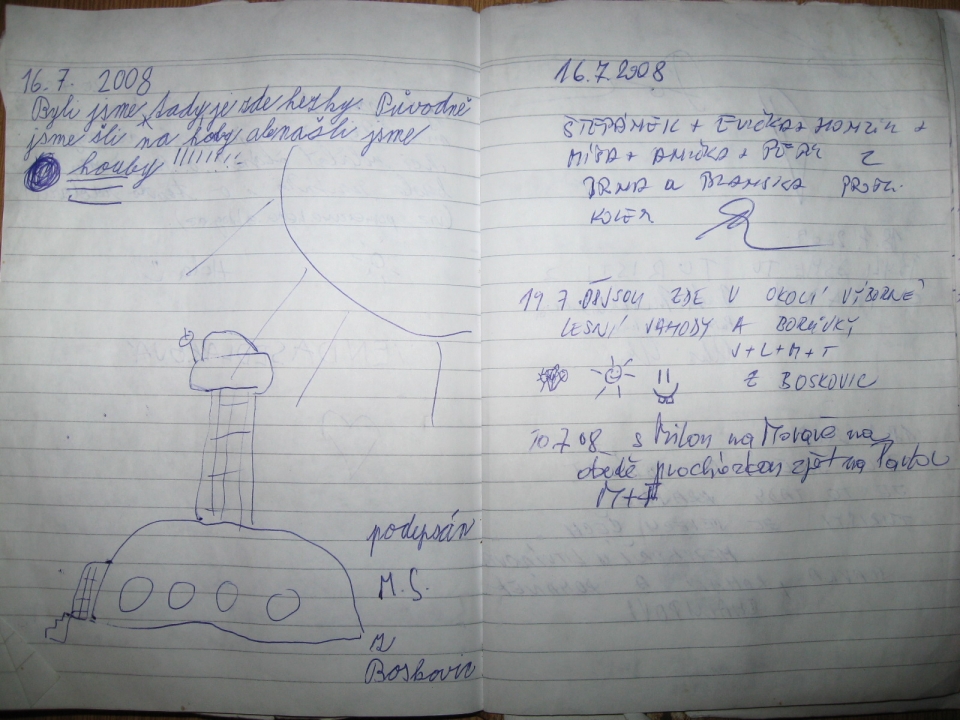 16. 7. 2008
Byli jsme tady je zde hezky. Původně
jsme šli na houby a našli jsme
houby !!!!!!!!
podepsán
M. S.
z
Boskovic
16.7.2008
ŠTEPÁNEK + EVIČKA + HONZÍK +
MÍŠA + ANIČKA + PÉŤA Z
BRNA a BLANSKA
KOLEM
19.7. ZDE V OKOLÍ VÝBORNÉ
LESNÍ JAHODY A BORŮVKY
V+L+M+T
Z BOSKOVIC
10.7.08 s Milon na Moravě na
obědě procházkou zpět na
M+